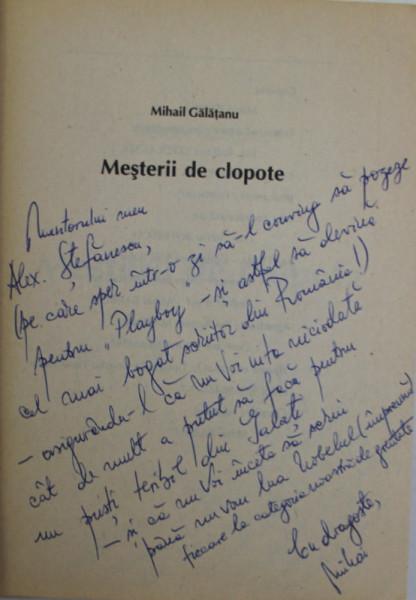 Mihail Gălățanu
Meşterii de clopote
Mentorului meu
Alex. Ștefănescu,
(pe care sper într-o zi să-l conving să pozeze
pentru "Playboy" – și astfel să devină
cel mai bogat scriitor din România!)
– asigurându-l că nu voi uita niciodată
cât de mult a putut să facă pentru
un puști teribil din Galați
– și că nu voi înceta să scriu
până nu vom lua Nobelul (împreună)
fiecare la categoria noastră de greutate
Cu dragoste,
Mihai